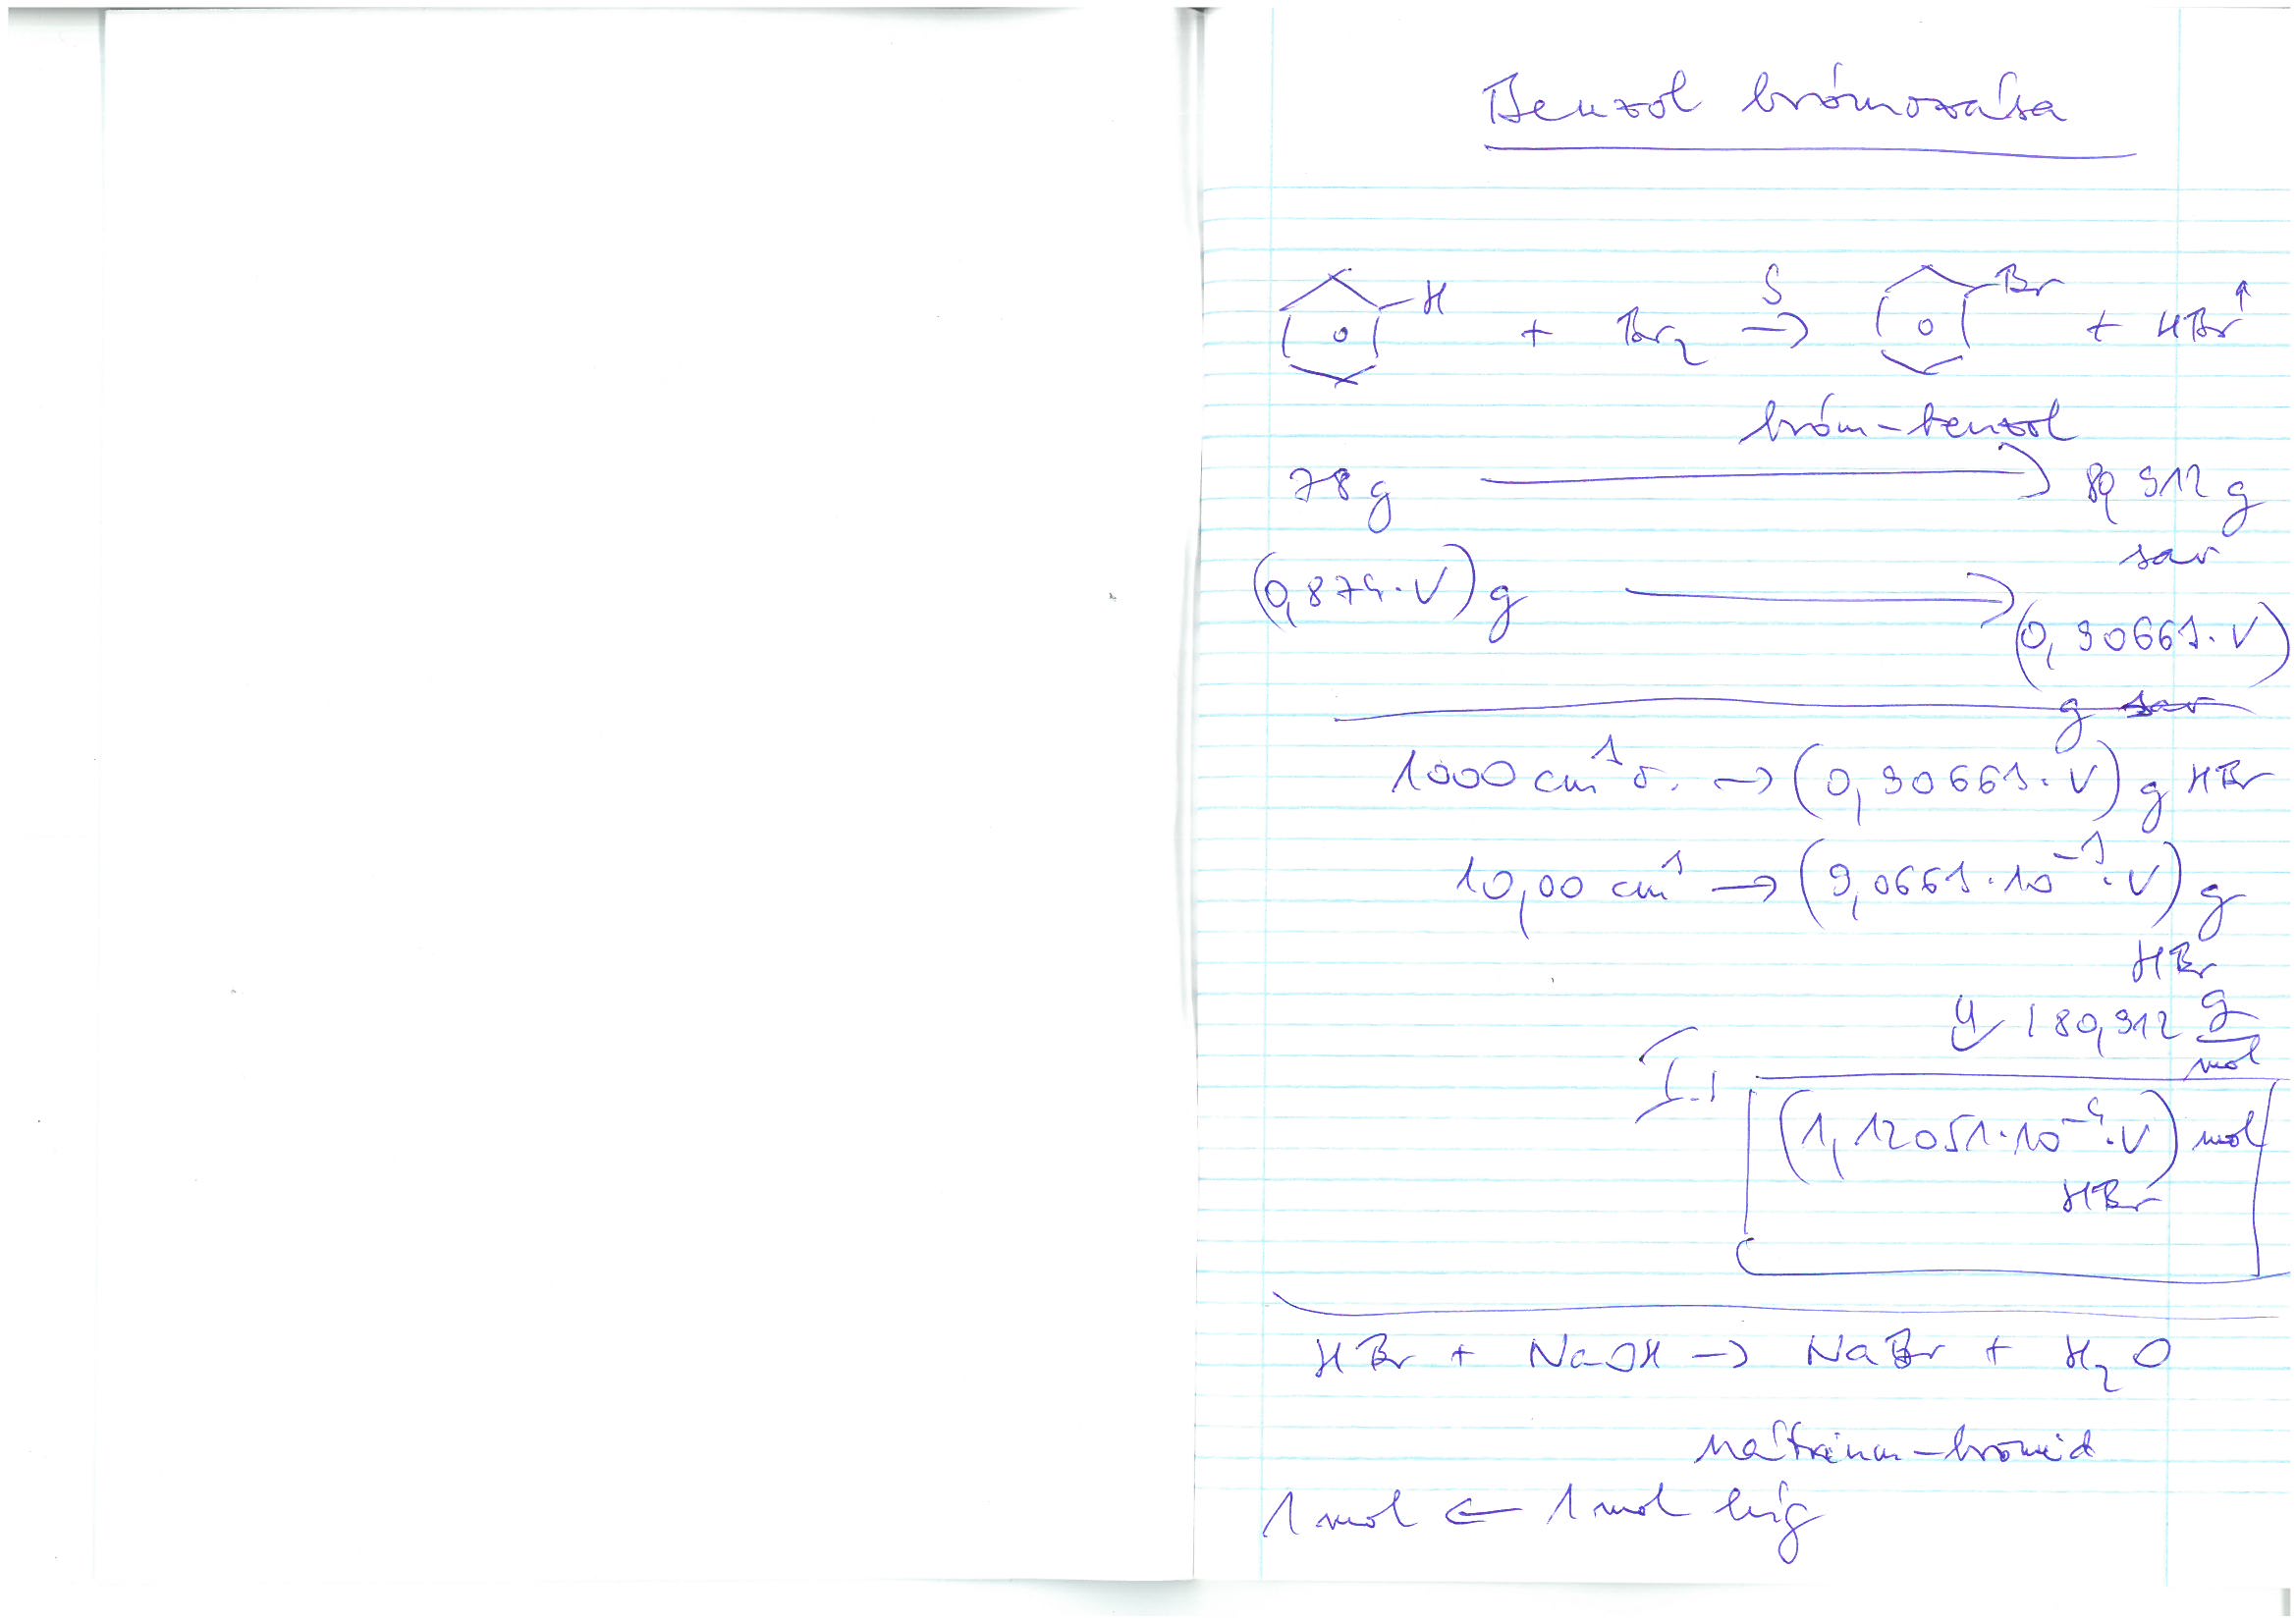 Benzol brómozása
H + Br₂ →ˢ Br + HBr↑
bróm-benzol
78 g → 80,912 g
sav
(0,874·V) g → (0,90663·V)
g sav
1000 cm³ o. → (0,90663·V) g HBr
10,00 cm³ → (9,0663·10⁻³·V) g
HBr
⇓ / 80,912 g/mol
I.,
(1,12051·10⁻⁴·V) mol
HBr
HBr + NaOH → NaBr + H₂O
nátrium-bromid
1 mol ← 1 mol lúg